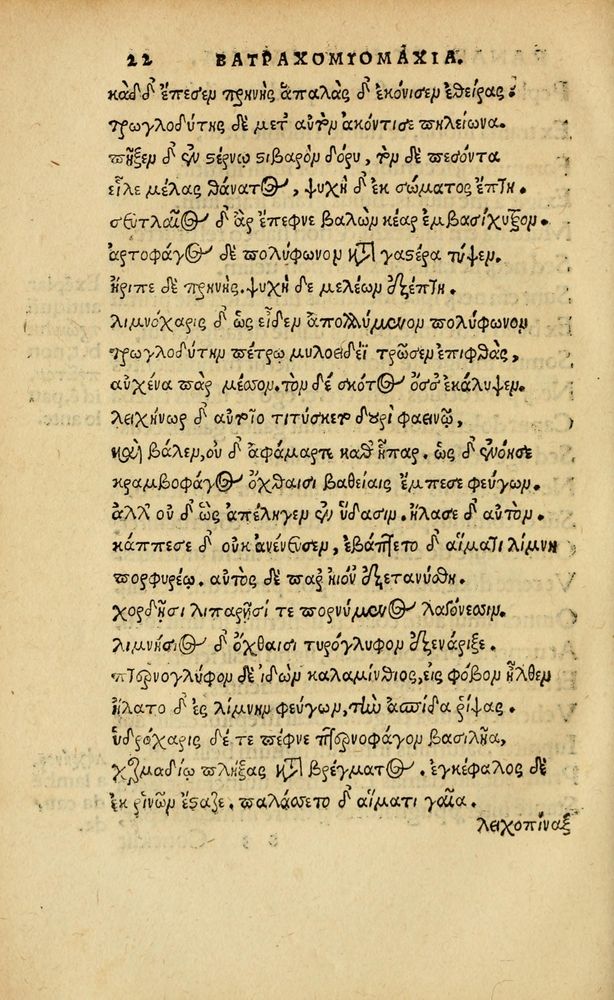 22 ΒΑΤΡΑΧΟΜΥΟΜΑΧΙΑ.
κὰδ δ' ἔπεσεν πρηνὴς ἁπαλὰς δ' ἐκόνισεν ἐθείρας.
τρωγλοδύτης δὲ μετ' αὐτὸν ἀκόντισε πηλείωνα.
πῆξεν δ' ἐν στέρνῳ στιβαρὸν δόρυ, τὸν δὲ πεσόντα
εἷλε μέλας θάνατος, ψυχὴ δ' ἐκ σώματος ἔπτη.
σευτλαῖος δ' ἂρ ἔπεφνε βαλὼν κέαρ ἐμβασίχυτρον.
ἀρτοφάγος δὲ πολύφωνον κατὰ γαστέρα τύψεν.
ἤριπε δὲ πρηνὴς. ψυχὴ δὲ μελέων ἐξέπτη.
λιμνόχαρις δ' ὡς εἶδεν ἀπολλύμενον πολύφωνον
τρωγλοδύτην πέτρῳ μυλοειδέϊ τρῶσεν ἐπιφθὰς,
αὐχένα παρ μέσον. τὸν δὲ σκότος ὄσσ' ἐκάλυψεν.
λειχήνωρ δ' αὐτοῖο τιτύσκετο δουρὶ φαεινῷ,
καὶ βάλεν, οὐ δ' ἀφάμαρτε καθ' ἧπαρ. ὡς δ' ἐνόησε
κραμβοφάγος ὄχθαισι βαθείαις ἔμπεσε φεύγων.
ἀλλ' οὐ δ' ὣς ἀπέληγεν ἐν ὕδασιν. ἤλασε δ' αὐτὸν.
κάππεσε δ' οὐκ ἀνένευσεν, ἐβάπτετο δ' αἵματι λίμνη
πορφυρέῳ. αὐτὸς δὲ παρ' ἠιόν' ἐξετανύσθη.
χορδῆσι λιπαρῇσί τε πορνύμενος λαγόνεσσιν.
λιμνήσιος δ' ὄχθαισι τυρόγλυφον ἐξενάριξε.
πτερνογλύφον δὲ ἰδὼν καλαμίνθιος, εἰς φόβον ἦλθεν
ἥλατο δ' ἐς λίμνην φεύγων, τὴν ἀσπίδα ῥίψας.
ὑδρόχαρις δέ τε πέφνε πτερνοφάγον βασιλῆα,
χερμαδίῳ πλήξας κατὰ βρέγματος. ἐγκέφαλος δὲ
ἐκ ῥινῶν ἔσταζε. παλάσσετο δ' αἵματι γαῖα.
λειχοπίναξ